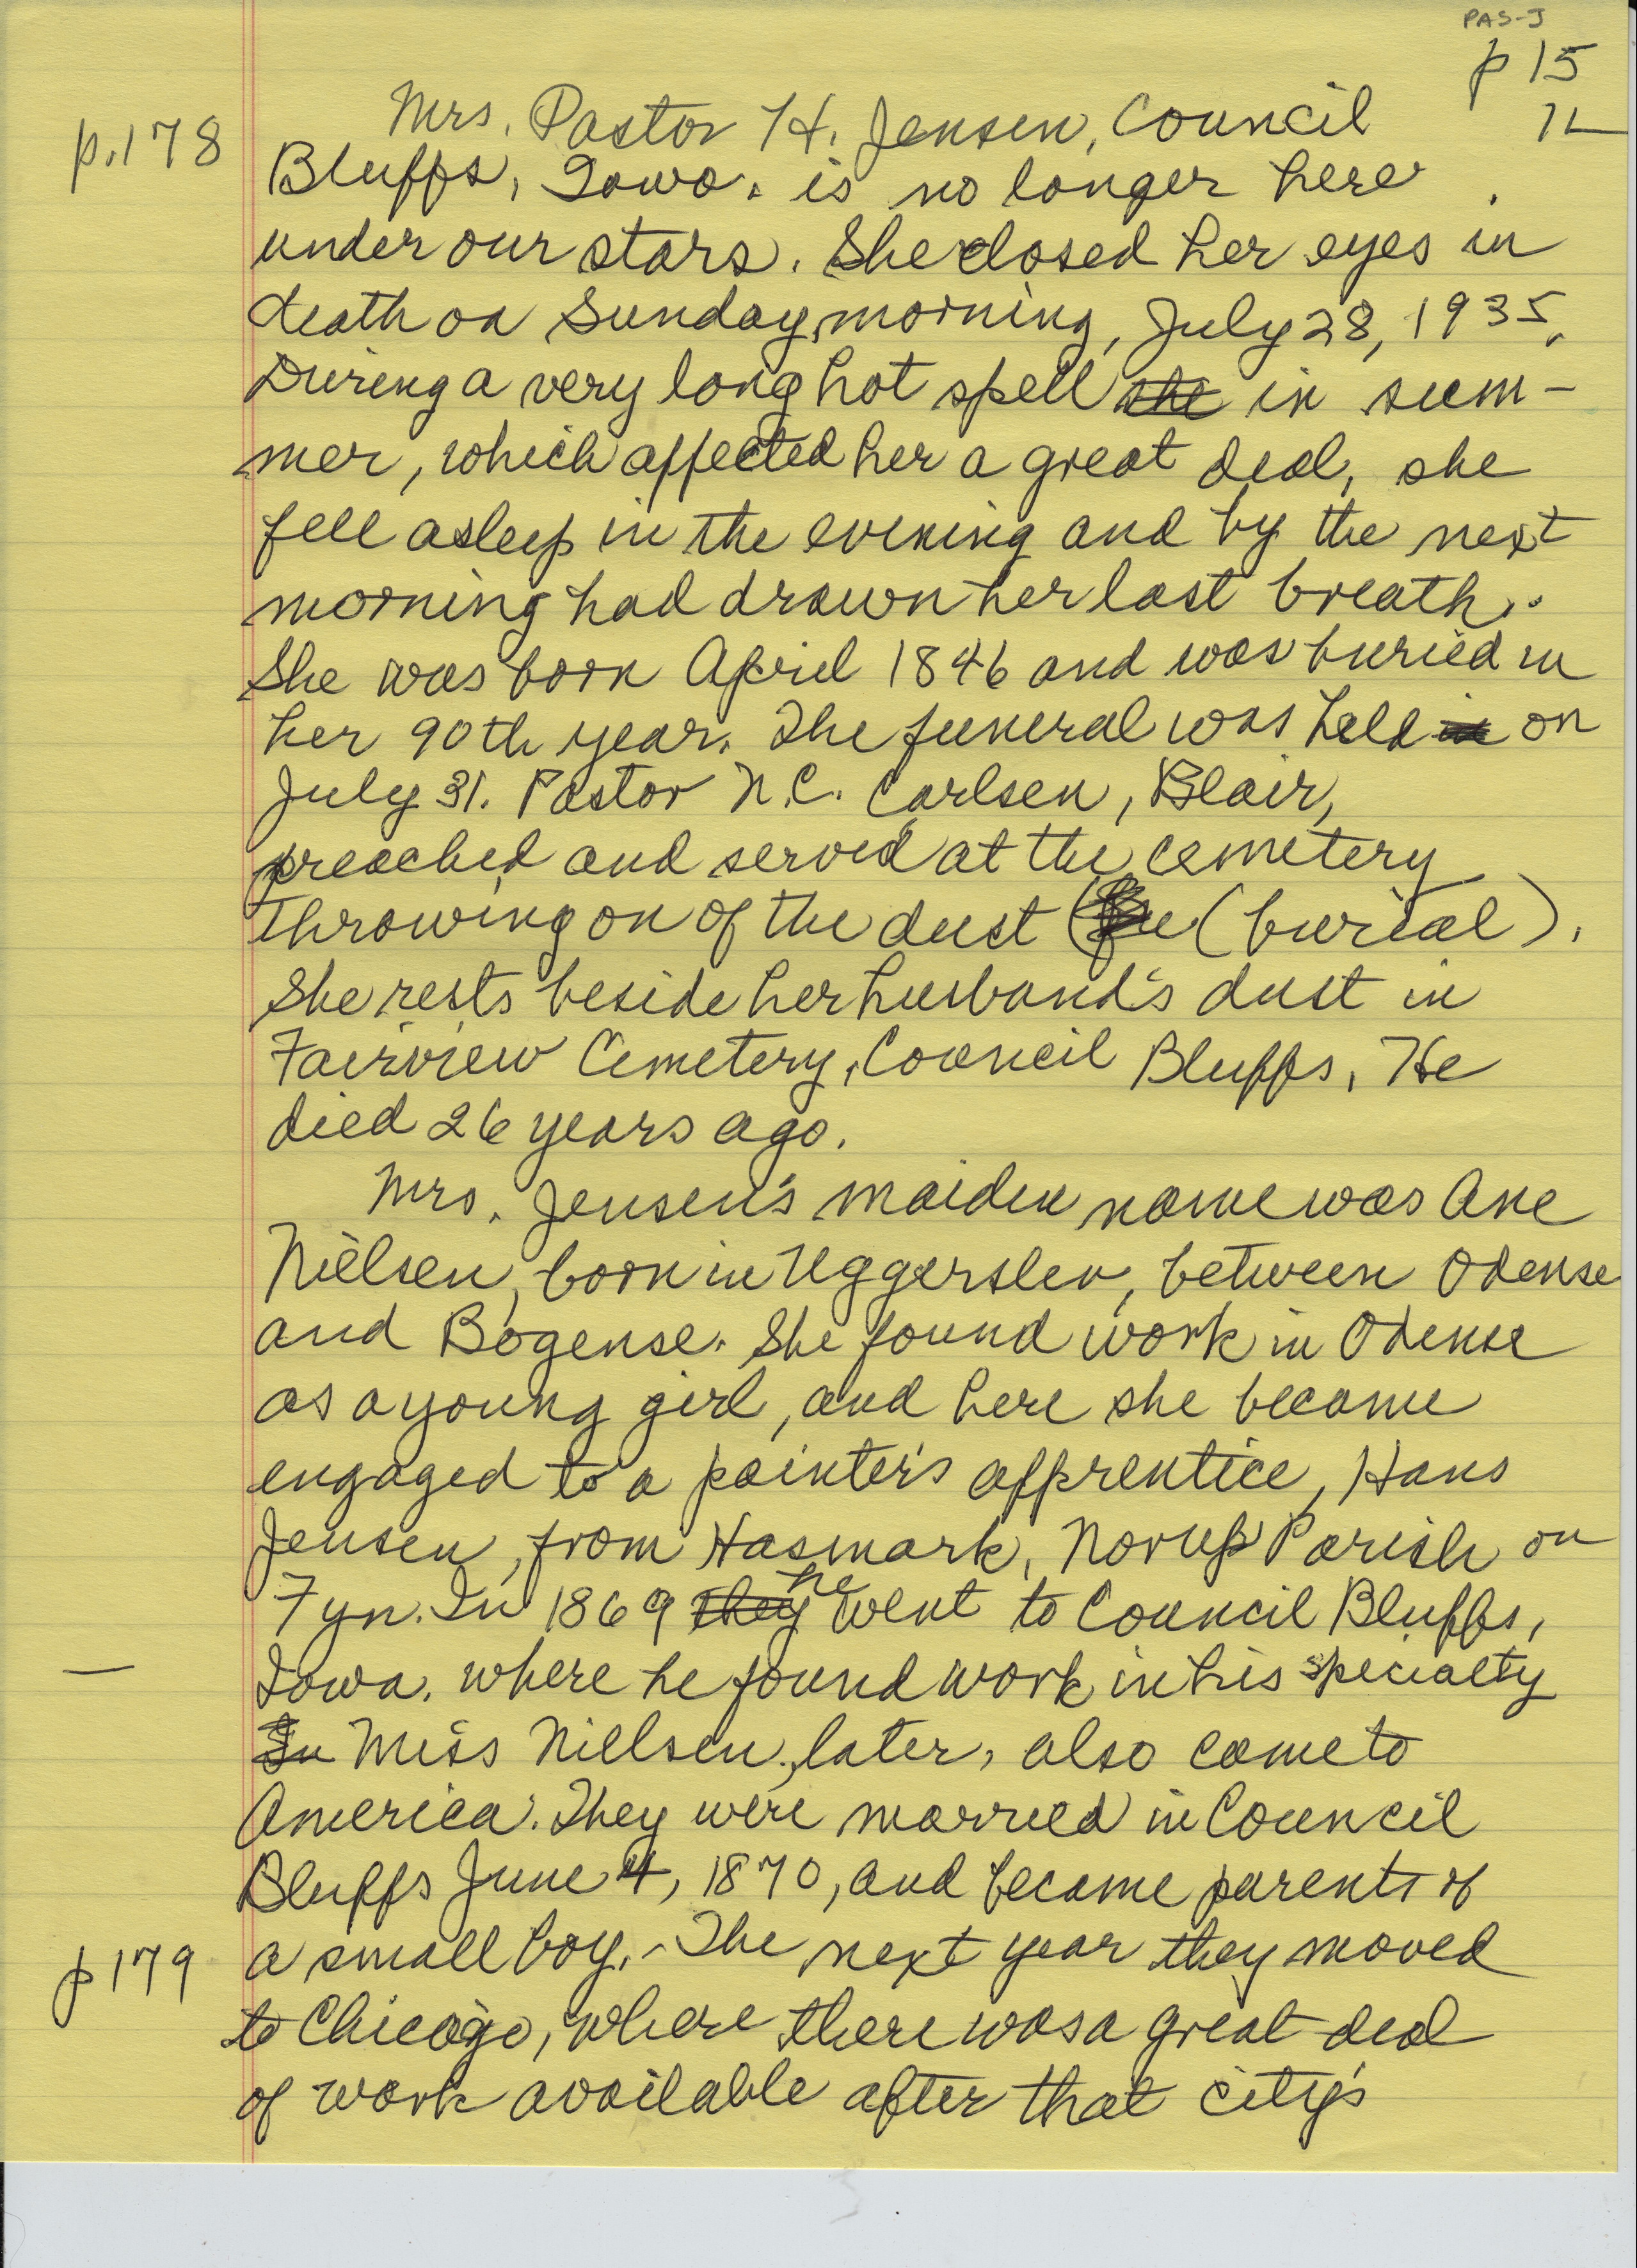 PAS-J
p 15
p.178
Mrs. Pastor H. Jensen, Council
Bluffs, Iowa. is no longer here
under our stars. She closed her eyes in
death on Sunday morning, July 28, 1935.
During a very long hot spell she in sum-
mer, which affected her a great deal, she
fell asleep in the evening and by the next
morning had drawn her last breath.
She was born April 1846 and was buried in
her 90th year. The funeral was held in on
July 31. Pastor N.C. Carlsen, Blair,
preached and served at the cemetery
throwing on of the dust (burial).
She rests beside her husband's dust in
Fairview Cemetery, Council Bluffs. He
died 26 years ago.
Mrs. Jensen's maiden name was Ane
Nielsen, born in Uggerslev, between Odense
and Bogense. She found work in Odense
as a young girl, and here she became
engaged to a painter's apprentice, Hans
Jensen, from Hasmark, Norup Parish on
Fyn. In 1869 they he went to Council Bluffs,
Iowa. where he found work in his specialty
In Miss Nielsen, later, also came to
America. They were married in Council
Bluffs June 4, 1870, and became parents of
p 179
a small boy. - The next year they moved
to Chicago, where there was a great deal
of work available after that city's